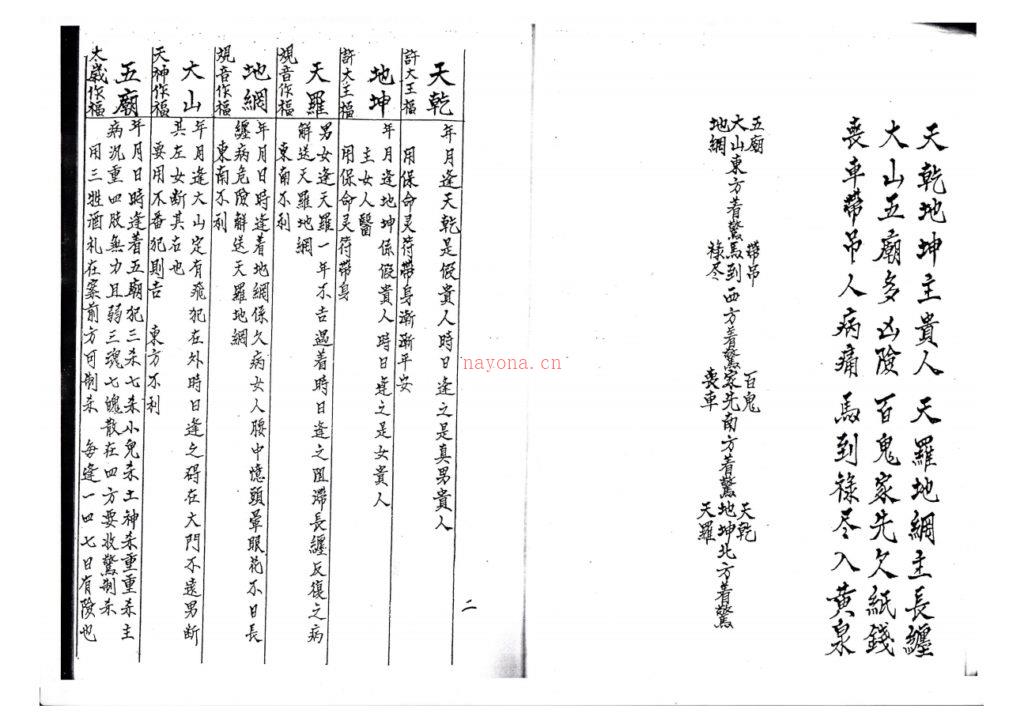 天乾地坤主貴人　天羅地網主長纏
大山五廟多凶險　百鬼家先欠紙錢
喪車帶吊人病痛　馬到祿尽入黃泉
五廟
大山東方着驚
地網
帶吊
馬到西方着驚
祿尽
百鬼
家先南方着驚
喪車
天乾
地坤北方着驚
天羅
二
天乾
年月逢天乾是假貴人時日逢之是真男貴人
許大王福
用保命灵符帶身漸漸平安
地坤
年月逢地坤係假貴人時日逢之是女貴人
主女人醫
許大主福
用保命灵符帶身
天羅
男女逢天羅一年不吉過着時日逢之阻滯長纏反復之病
解送天羅地網
觀音作福
東南不利
地網
年月日時逢着地網係久病女人腰中憶頭暈眼花不日長
纏病危險解送天羅地網
觀音作福
東南不利
大山
年月逢大山定有飛犯在外時日逢之碍在大門不遠男斷
其左女斷其右也
天神作福
要用不番犯則吉　東方不利
五廟
年月日時逢着五廟犯三杀七杀小兒杀土神杀重重杀主
病沉重四肢無力且弱三魂七魄散在四方要收驚制杀
太歲作福
用三牲酒礼在案前方可制杀　每逢一四七日有險也
nayona.cn